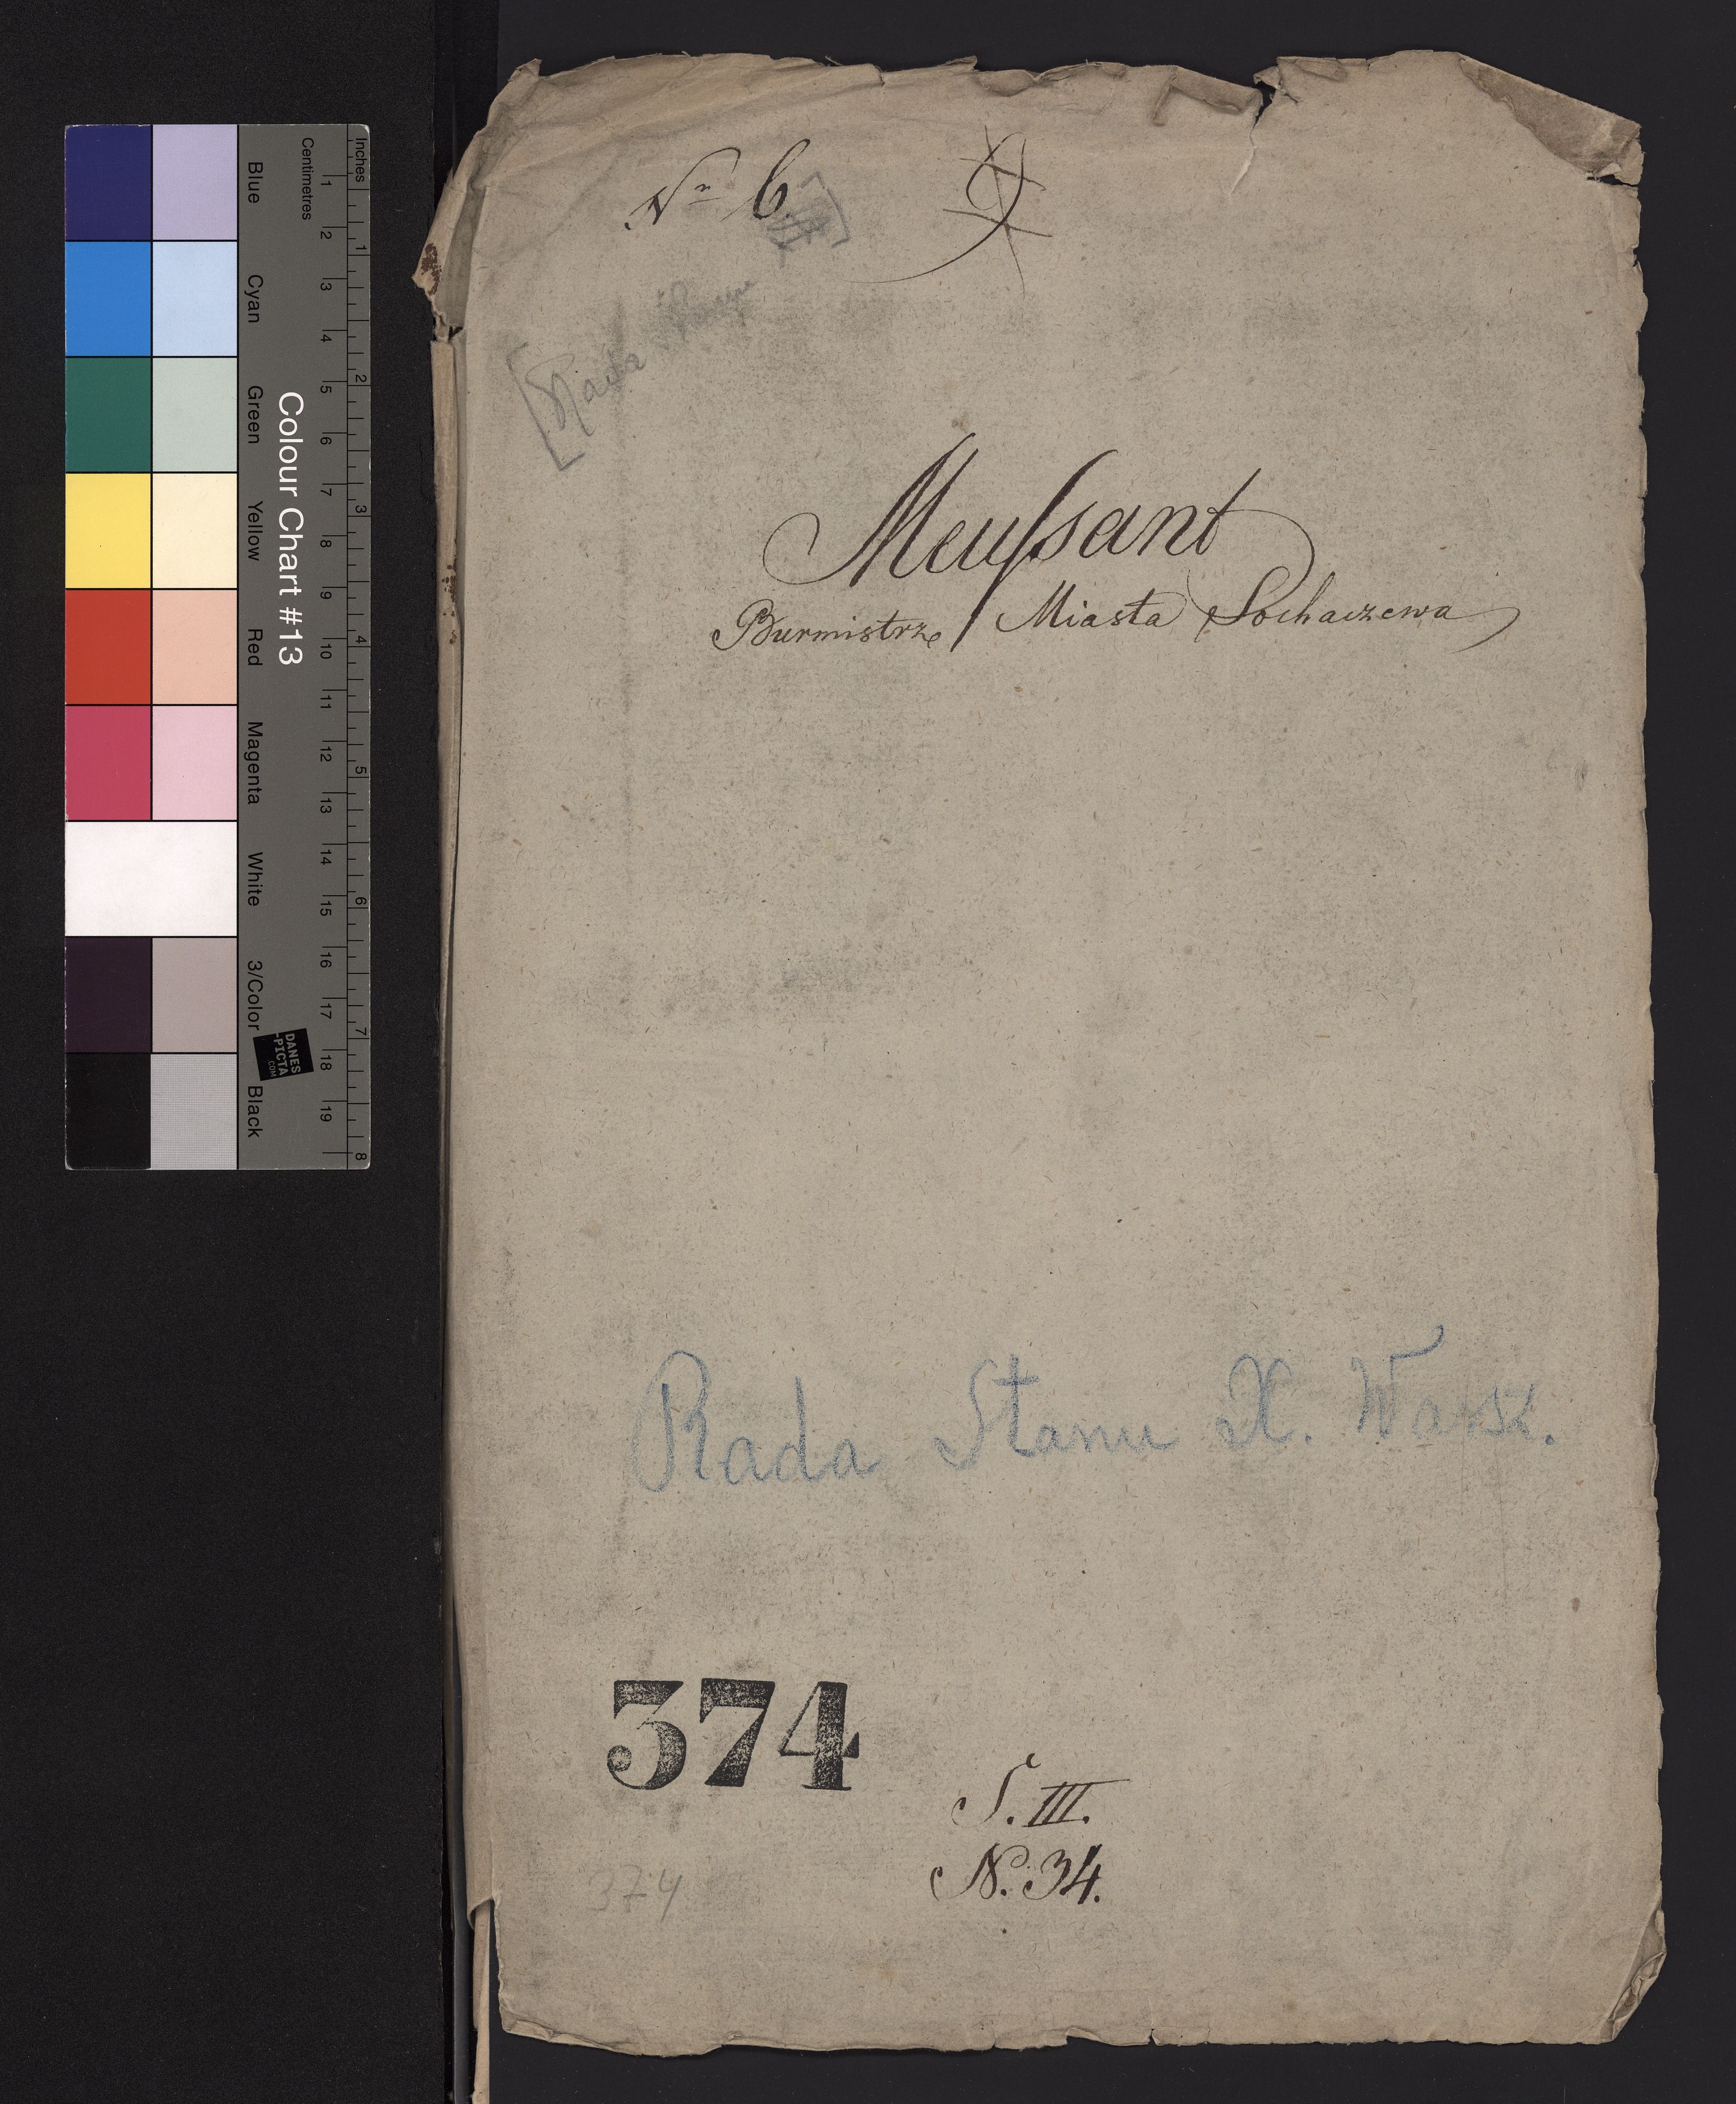 Nr 6.
[Rada
Meussant
Burmistrz Miasta Sochaczewa
Rada Stanu X. Warsz.
374
S. III.
N. 34.
374
Colour Chart #13
Blue Cyan Green Yellow Red Magenta White 3/Color Black
Centimetres 1 2 3 4 5 6 7 8 9 10 11 12 13 14 15 16 17 18 19
Inches 1 2 3 4 5 6 7 8
DANES
-PICTA
.COM